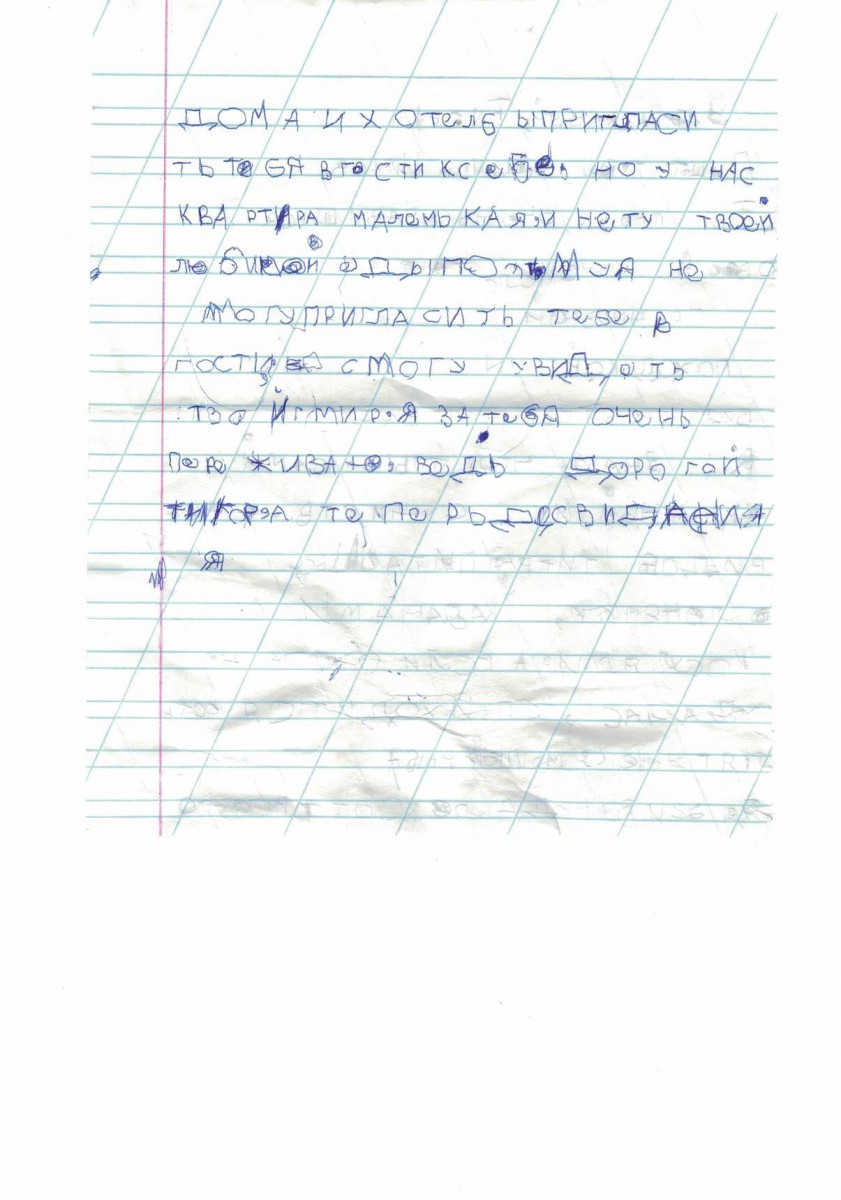 ДОМА И ХОТЕЛЕ Ы ПРИГЛАСИ
ТЬ ТЕБЯ В ГОСТИ К СЕБЕ, НО У НАС
КВАРТИРА МАЛЕНЬКАЯ И НЕТУ ТВОЕЙ
ЛЮБИМОЙ ЕДЫ ПОЭТОМУ Я НЕ
МОГУ ПРИГЛАСИТЬ ТЕБЕ В
ГОСТИ СМОГУ УВИДЕТЬ
ТВОЙ МИР. Я ЗА ТЕБЯ ОЧЕНЬ
ПЕРЕЖИВАЮ, ВЕДЬ ДОРОГОЙ
ТЕПЕРЬ ДОСВИДАНИЯ
Я